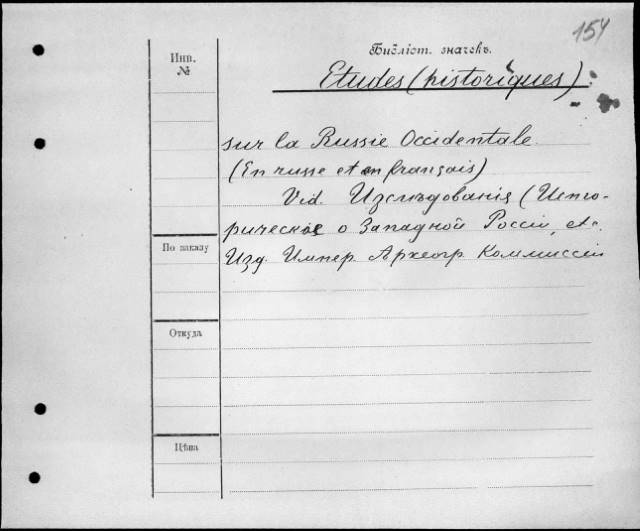 154
Библіот. значекъ.
Инв.
№
Etudes (historiques)
sur la Russie Occidentale
(En russe et en français)
Vid. Изслѣдованія (Исто-
рическое о Западной Россіи, etc.
Изд. Импер. Археогр. Коммиссіи
По заказу
Откуда
Цѣна